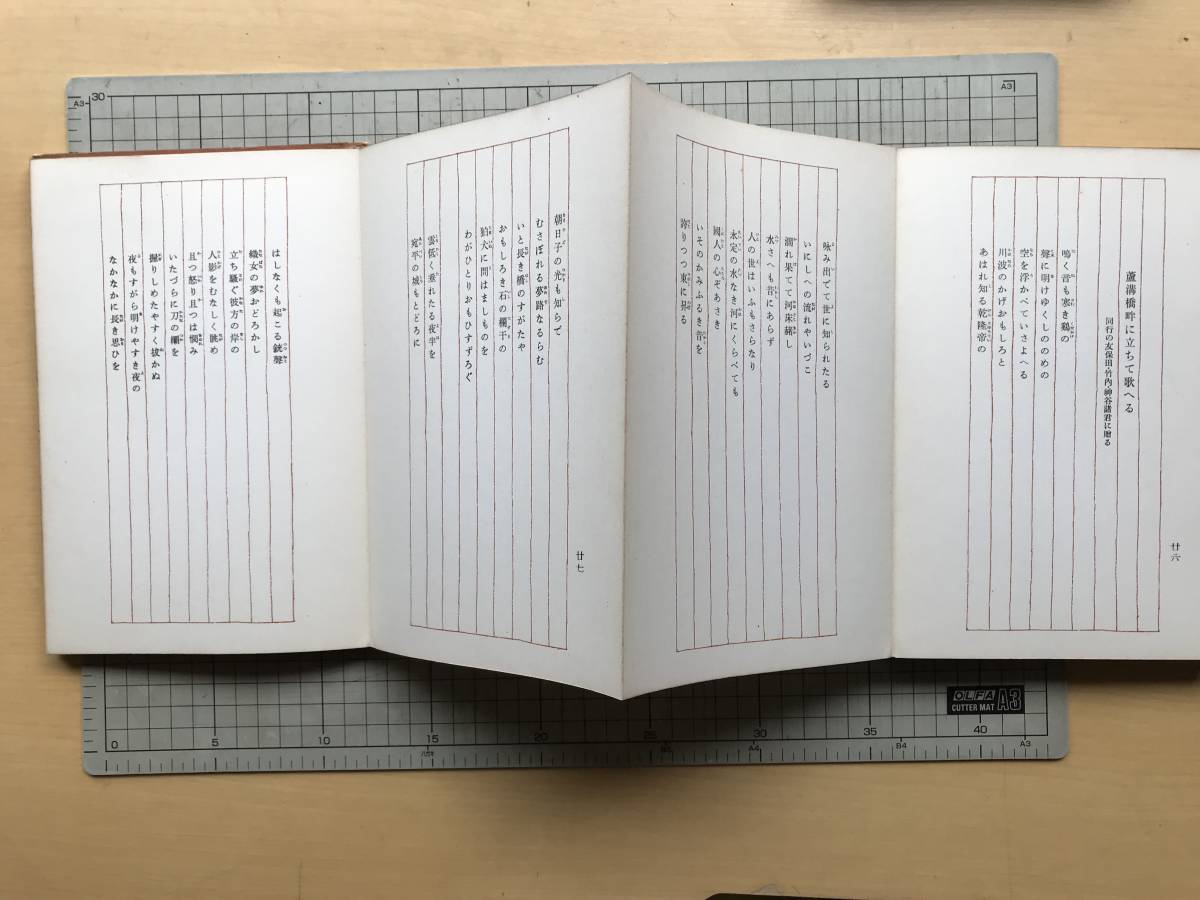 蘆溝橋畔に立ちて歌へる
同行の友保田・竹内・神谷諸君に贈る
鳴く音も寒き鶏の
聲に明けゆくしののめの
空を浮かべていさよへる
川波のかげおもしろと
あはれ知る乾隆帝の
廿六
咏み出でて世に知られたる
いにしへの流れやいづこ
涸れ果てて河床赭し
水さへも昔にあらず
人の世はいふもさらなり
永定の水なき河にくらべても
國人の心ぞあさき
いそのかみふるき昔を
誇りつつ東に昇る
朝日子の光も知らで
むさぼれる夢路なるらむ
いと長き橋のすがたや
おもしろき石の欄干の
狛犬に問はましものを
わがひとりおもひすずろぐ
雲低く垂れたる夜半を
宛平の城もとどろに
廿七
はしなくも起こる銃聲
織女の夢おどろかし
立ち騷ぐ彼方の岸の
人影をむなしく眺め
且つ怒り且つは憫み
いたづらに刀の欛を
握りしめたやすく拔かぬ
夜もすがら明けやすき夜の
なかなかに長き思ひを
A3
30
A3
0
5
10
15
20
25
30
35
40
ハガキ
B5
A4
B4
A3
OLFA
CUTTER MAT A3